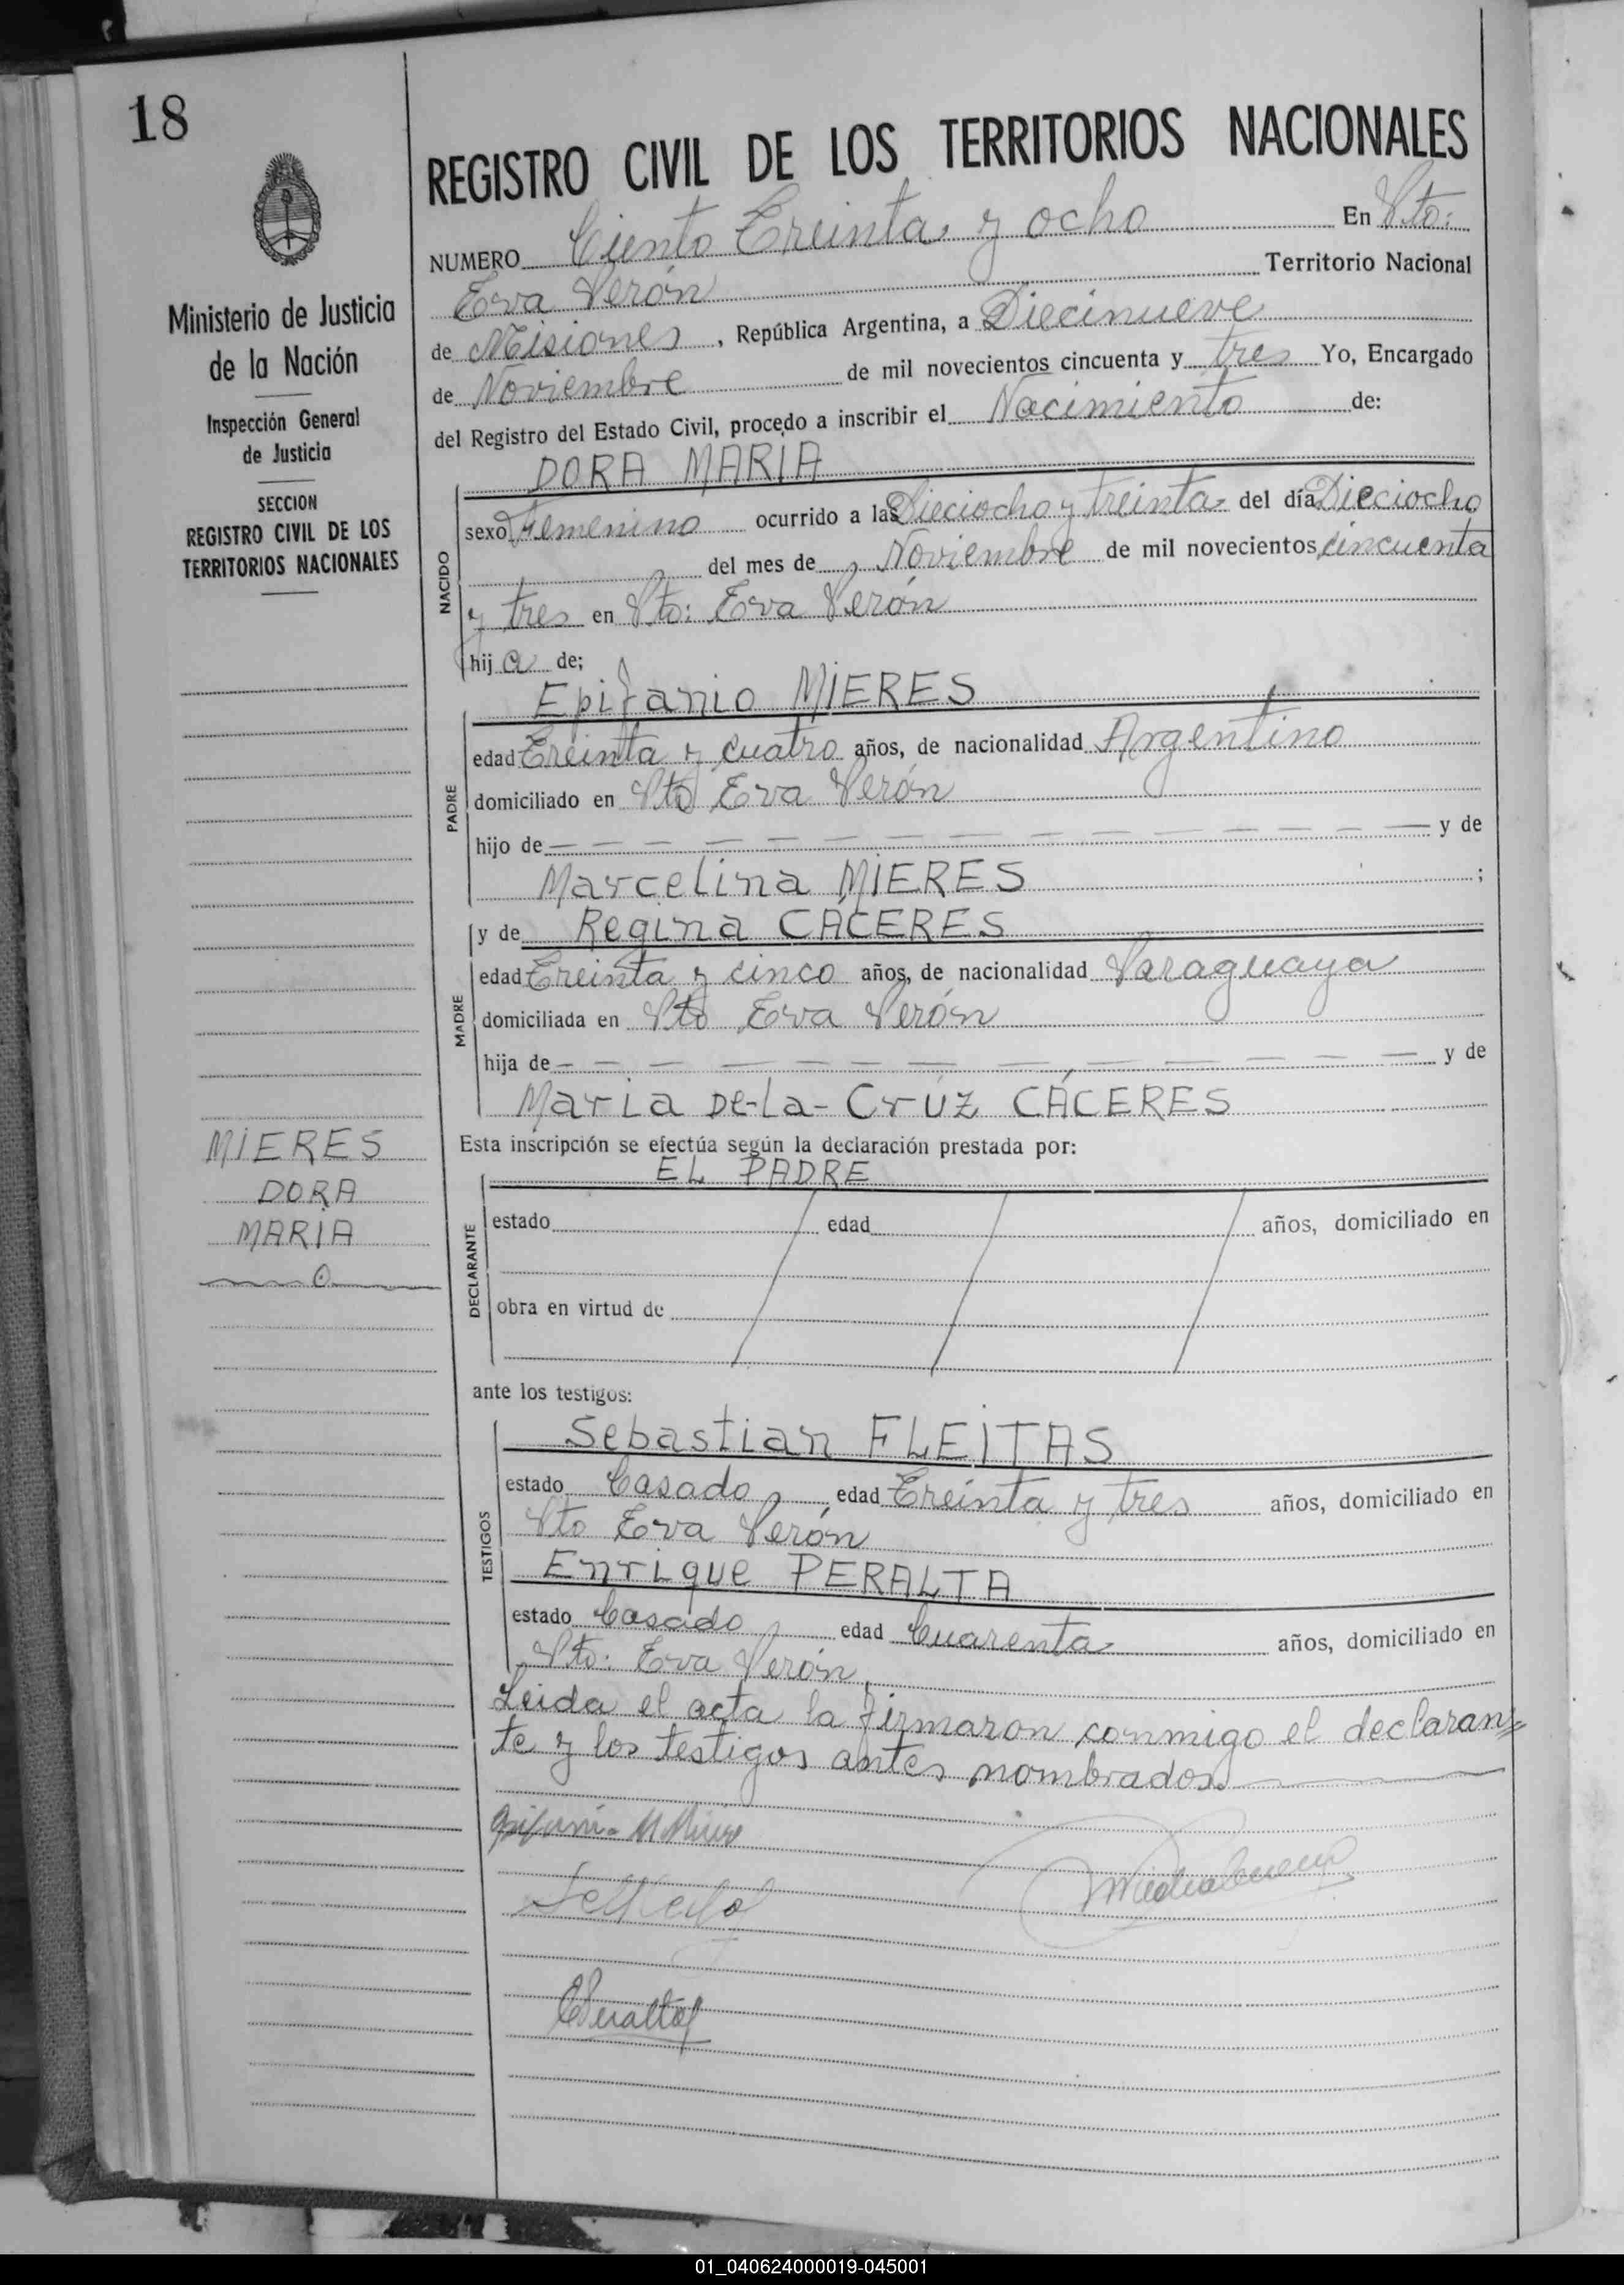 18
REGISTRO CIVIL DE LOS TERRITORIOS NACIONALES
NUMERO Ciento Treinta y ocho En Pto:
Eva Perón Territorio Nacional
de Misiones, República Argentina, a Diecinueve
de Noviembre de mil novecientos cincuenta y tres Yo, Encargado
del Registro del Estado Civil, procedo a inscribir el Nacimiento de:
DORA MARIA
NACIDO
sexo Femenino ocurrido a las Dieciocho y treinta del día Dieciocho
del mes de Noviembre de mil novecientos cincuenta
y tres en Pto: Eva Perón
hija de;
Epifanio MIERES
PADRE
edad Treinta y cuatro años, de nacionalidad Argentino
domiciliado en Pto Eva Perón
hijo de — — — — — — — — — — — — y de
Marcelina MIERES ;
y de Regina CÁCERES
MADRE
edad Treinta y cinco años, de nacionalidad Paraguaya
domiciliada en Pto Eva Perón
hija de — — — — — — — — — — — y de
Maria De-La-Cruz CÁCERES
Esta inscripción se efectúa según la declaración prestada por:
EL PADRE
DECLARANTE
estado edad años, domiciliado en
obra en virtud de
ante los testigos:
Sebastian FLEITAS
TESTIGOS
estado Casado edad Treinta y tres años, domiciliado en
Pto Eva Perón
Enrique PERALTA
estado Casado edad Cuarenta años, domiciliado en
Pto: Eva Perón
Leida el acta la firmaron conmigo el declaran=
te y los testigos antes nombrados.
Ministerio de Justicia
de la Nación
Inspección General
de Justicia
SECCION
REGISTRO CIVIL DE LOS
TERRITORIOS NACIONALES
MIERES
DORA
MARIA
EPeralta
01_040624000019-045001